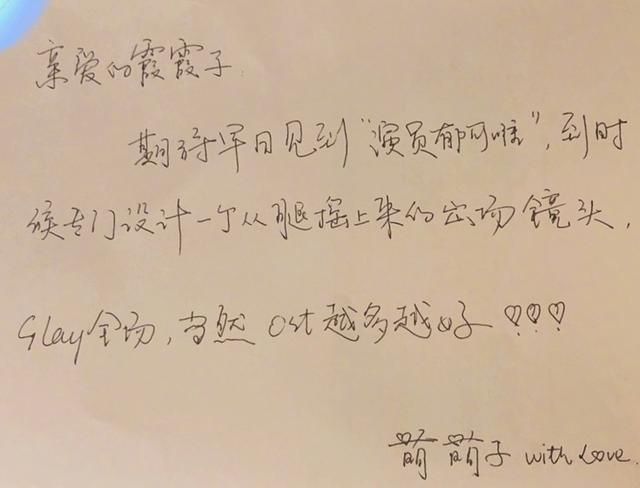 亲爱的霞霞子.
期待早日见到“演员郁可唯”,到时
候专门设计一个从腿摇上来的出场镜头,
Slay全场,当然 ost越多越好 ♡♡♡
萌萌子 with Love.